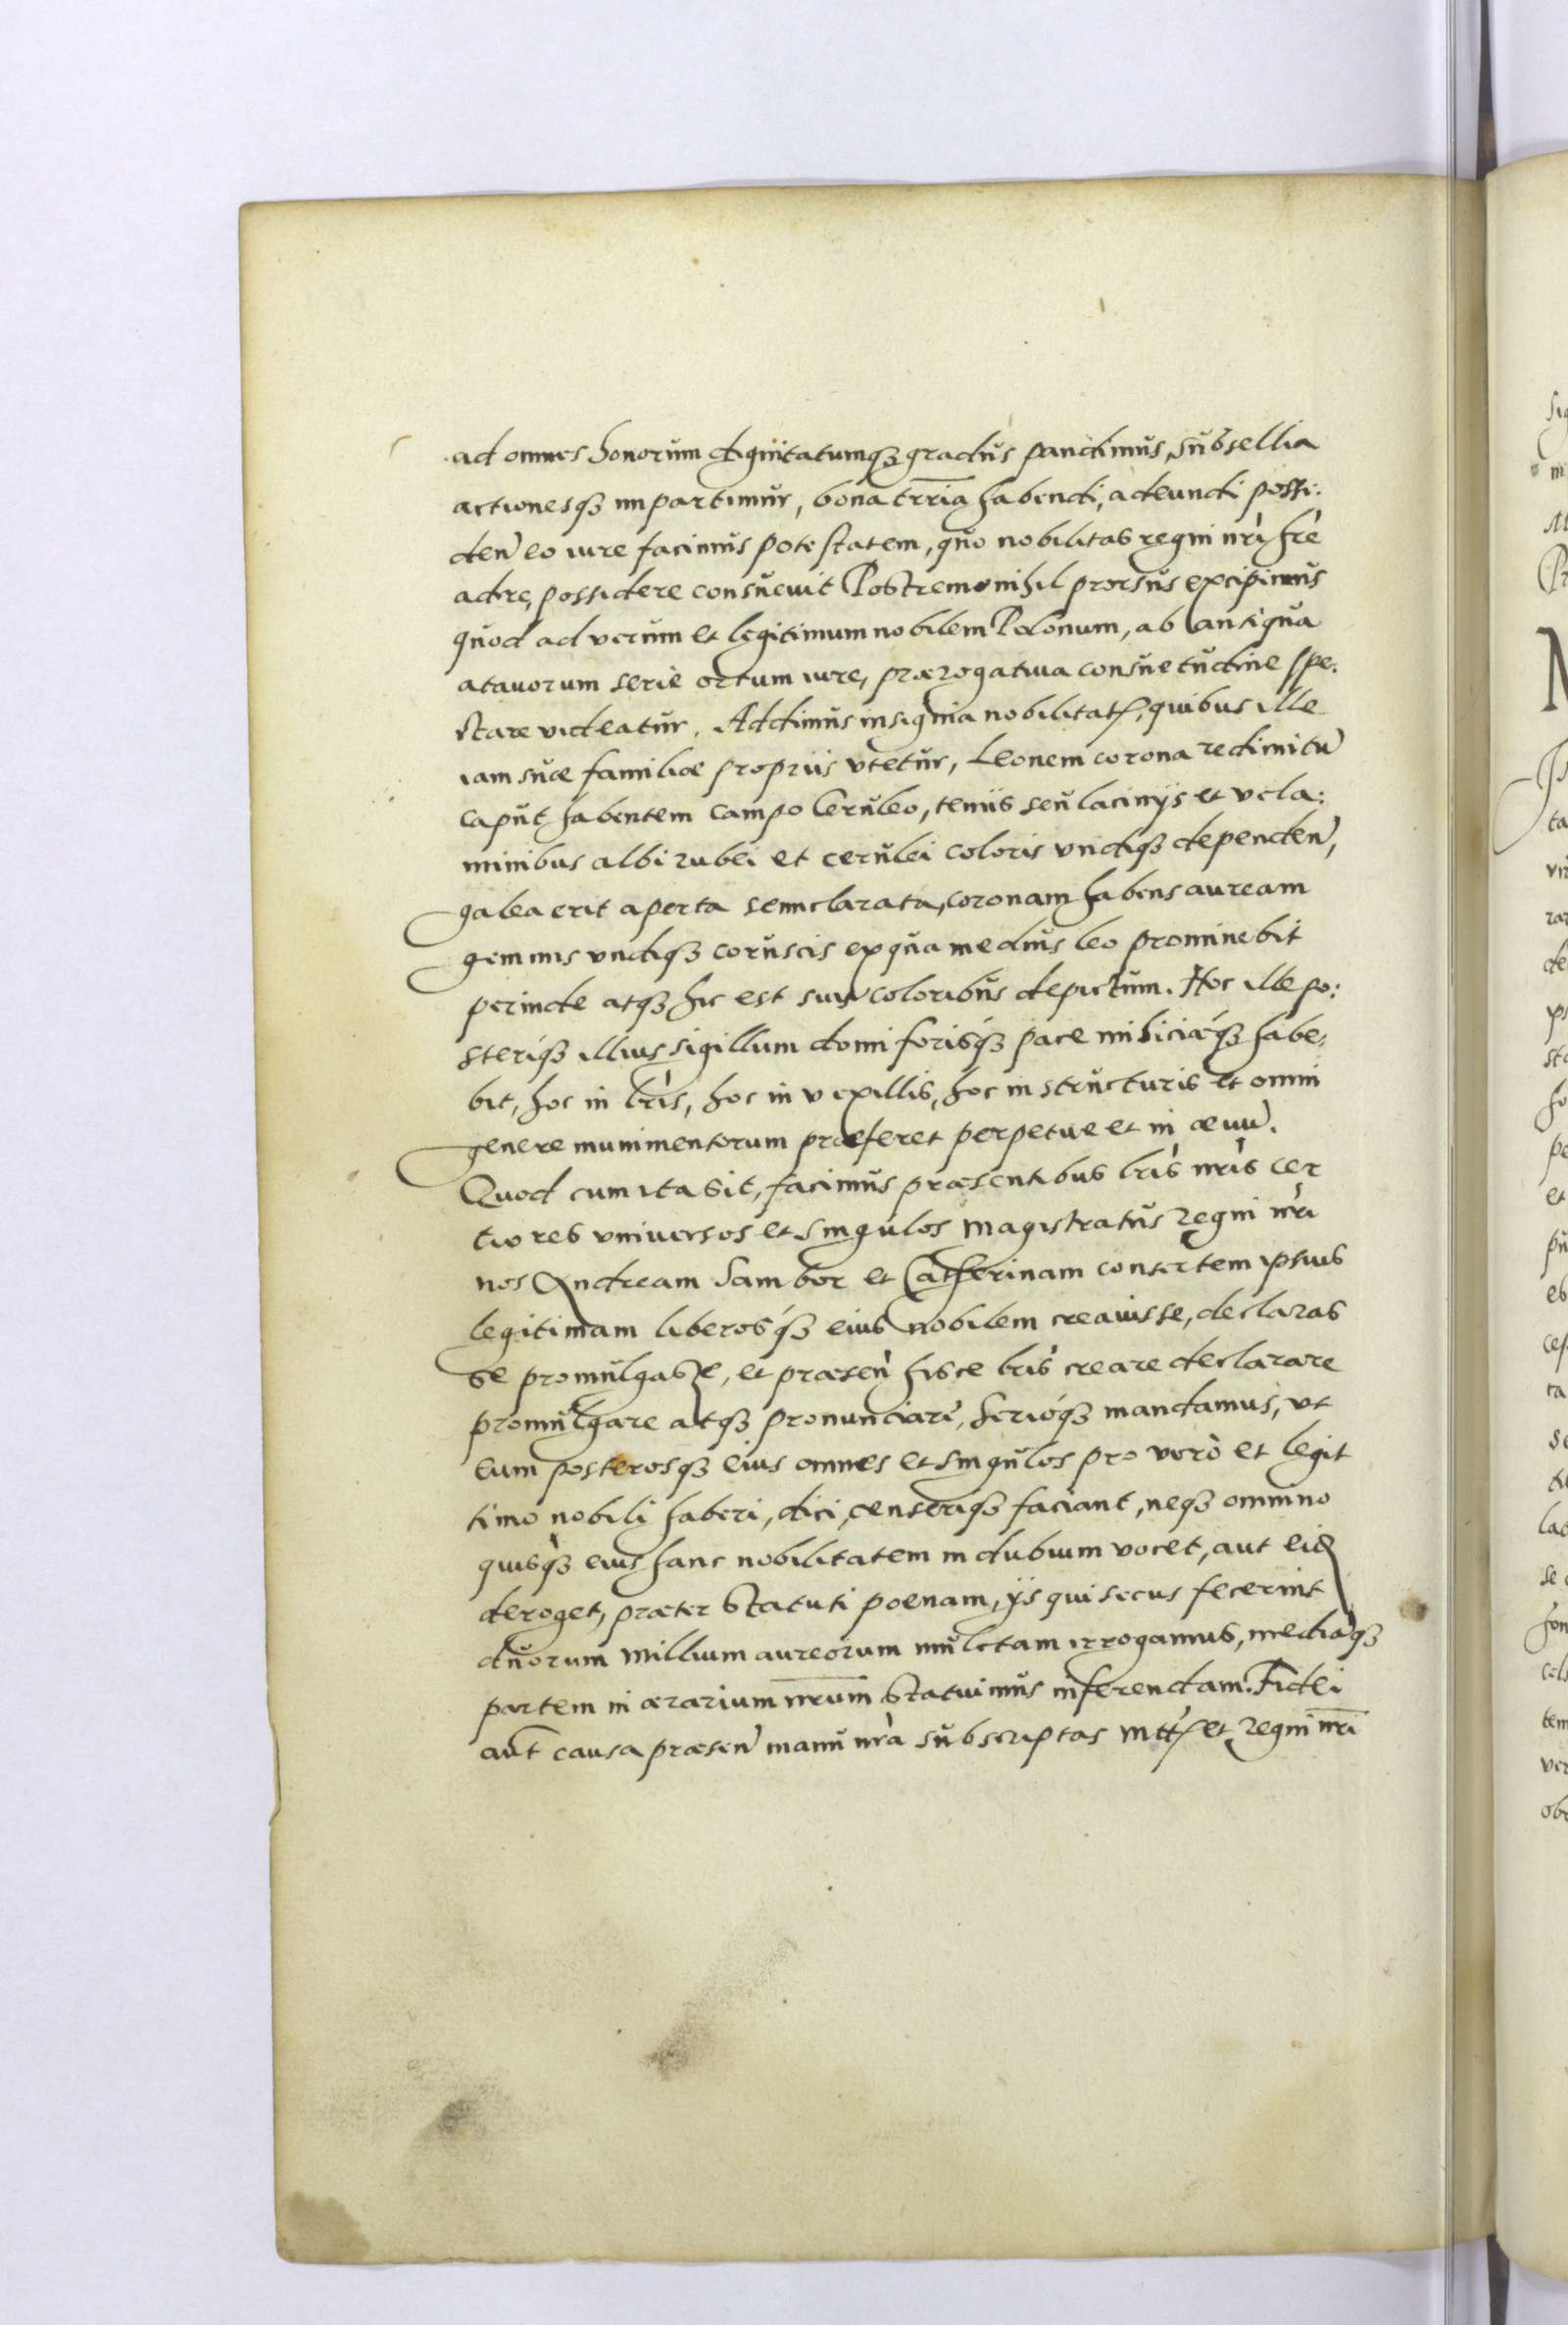 ad omnes honorum dignitatumq₃ gradus pandimus, subsellia
actionesq₃ impartimur, bona trria habendi, adeundi possi:
den̄ eo iure facimus potestatem, quo nobilitas regni nri hre
adire, possidere consuevit Postremo nihil prorsus excipimus
quod ad verum et legitimum nobilem Polonum, ab antiqua
atavorum serie ortum iure, prærogativa consuetudine spe:
ctare videatur. Addimus insignia nobilitatꝭ, quibus ille
iam suæ familiæ propriis vtetur, Leonem corona redimitū
caput habentem campo Ceruleo, teniis seu lacinijs et vela:
minibus albi rubei et cerulei coloris vndiq₃ dependen̄,
galea erit aperta semiclarata, coronam habens auream
gemmis vndiq₃ coruscis ex qua medius leo prominebit
perinde atq₃ hic est suis coloribus depictum. Hoc ille po:
steriq₃ illius sigillum domi forisq₃ pace miliciáq₃ habe:
bit, hoc in lris, hoc in vexillis, hoc in structuris et omni
genere munimentorum præferet perpetue et in ævū.
Quod cum ita sit, facimus præsentibus lris nris cer
tiores vniversos et singulos magistratus Regni nri
nos Andream Sambor et Catherinam consortem ipsius
legitimam liberosq₃ eius nobilem creavisse, declaras
se promulgasse, et præsen̄ hisce lris creare declarare
promulgare atq₃ pronunciare, Serióq₃ mandamus, vt
eum posterosq₃ eius omnes et singulos pro vero et legit
timo nobili haberi, dici, censeriq₃ faciant, neq₃ omnino
quisq₃ eius hanc nobilitatem in dubium vocet, aut ei
deroget, præter Statuti poenam, ijs qui secus fecerint
duorum millium aureorum mulctam irrogamus, mediāq₃
partem in ærarium nrum Statuimus inferendam. Fidei
aut causa præsen̄ manu nra subscriptas mttꝭ et Regni nri